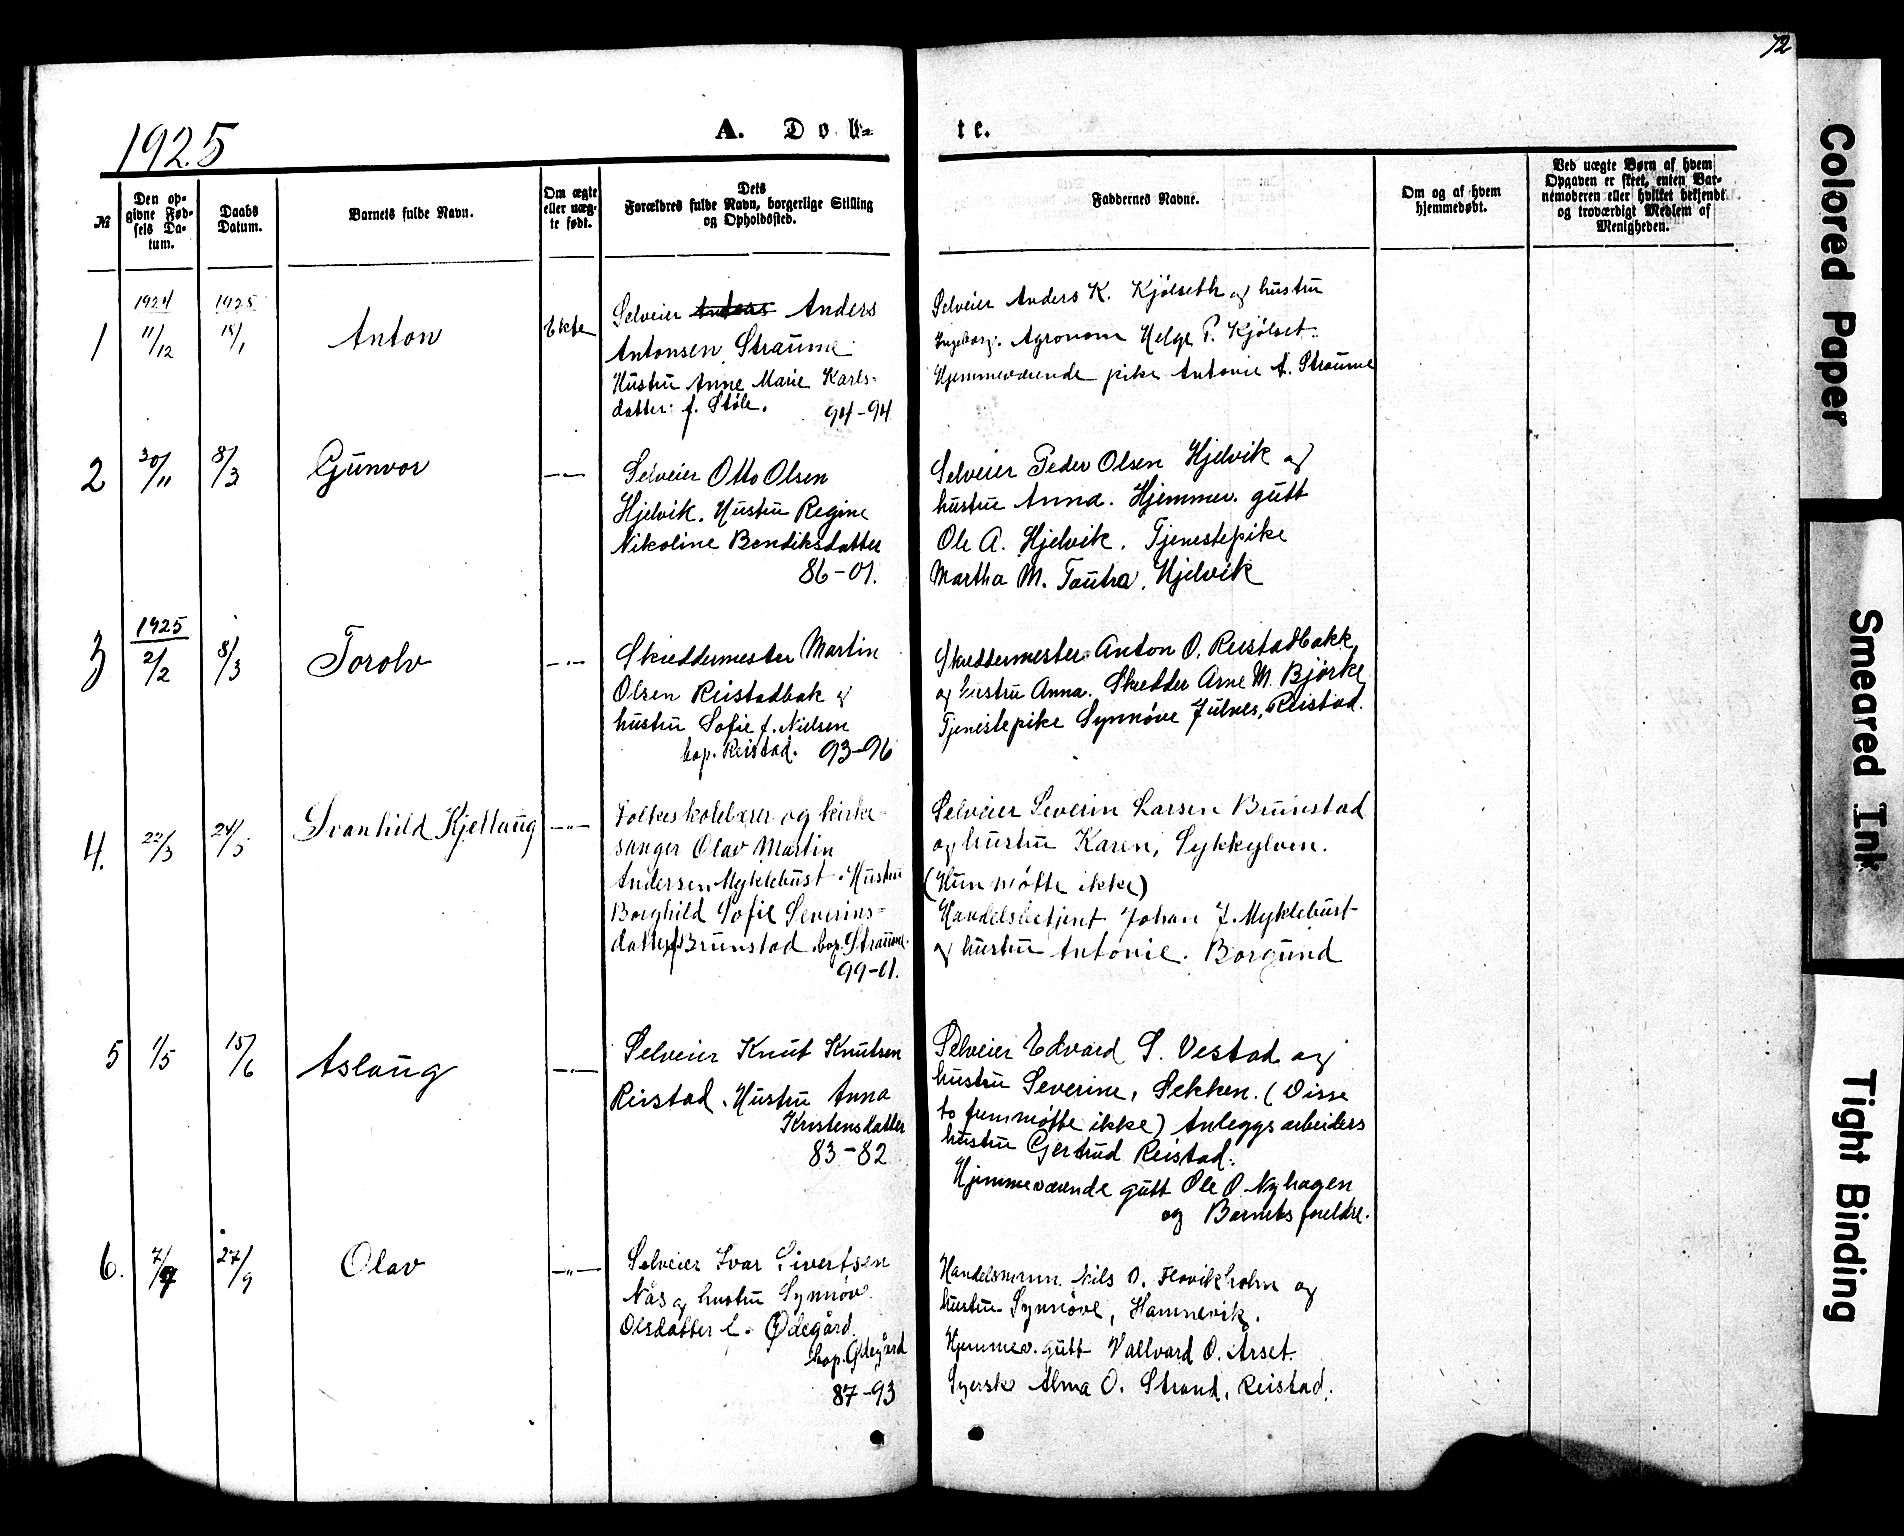 72
1925
A. Døb-
te.
№
Den op-
givne Fød-
sels Da-
tum.
Daabs
Datum.
Barnets fulde Navn.
Om ægte
eller uæg-
te født.
Dets
Forældres fulde Navn, borgerlige Stilling
og Opholdssted.
Faddernes Navne.
Om og af hvem
hjemmedøbt.
Ved uægte Børn af hvem
Opgaven er skeet, enten Bar-
nemoderen eller hvilket bekjendt
og troværdigt Medlem af
Menigheden.
1
1924
11/12
1925
18/1
Anton
Ekte
Selveier Anders
Antonsen Straume
Hustru Anne Marie Karls-
datter f. Støle.
94-94
Selveier Anders K. Kjølseth og hustru
Ingeborg. Agronom Helge P. Kjølset.
Hjemmeværende pike Antonie A. Straume
2
30/11
8/3
Gunvor
-"-
Selveier Otto Olsen
Hjelvik. Hustru Regine
Nikoline Bendiksdatter
86-01.
Selveier Peder Olsen Hjelvik og
hustru Anna. Hjemmev. gutt
Ole A. Hjelvik. Tjenestepike
Martha M. Tautra, Hjelvik
3
1925
2/2
8/3
Torolv
-"-
Skreddermester Martin
Olsen Reistadbak og
hustru Sofie f. Nielsen
bop. Reistad. 93-96
Skreddermester Anton O. Reistadbakk
og hustru Anna. Skredder Arne M. Bjørke
Tjenestepike Synnøve Julnes, Reistad.
4.
22/3
24/5
Svanhild Kjellaug
-"-
Folkeskolelærer og kirke-
sanger Olav Martin
Andersen Myklebust. Hustru
Borghild Sofie Severins-
datter f. Brunstad bop. Straume.
99-01.
Selveier Severin Larsen Brunstad
og hustru Karen, Sykkylven.
(Hun møtte ikke)
Handelsbetjent Johan J. Myklebust
og hustru Antonie. Borgund
5
1/5
15/6
Aslaug
-"-
Selveier Knut Knutsen
Reistad. Hustru Anna
Kristensdatter
83-82
Selveier Edvard S. Vestad og
hustru Severine, Sekken. (Disse
to fremmøtte ikke) Anleggsarbeiders
hustru Gertrud Reistad.
Hjemmeværende gutt Ole O. Nyhagen
og Barnets foreldre.
6.
27/9
Olav
-"-
Selveier Ivar Sivertsen
Nås og hustru Synnøv
Olsdatter f. Ødegård.
bop. Ødegård
87-93
Handelsmann Nils O. Flovikholm og
hustru Synnøve, Hamnevik.
Hjemmev. gutt Hallvard O. Årset.
Syerske Alma O. Strand, Reistad.
Colored Paper
Smeared Ink
Tight Binding